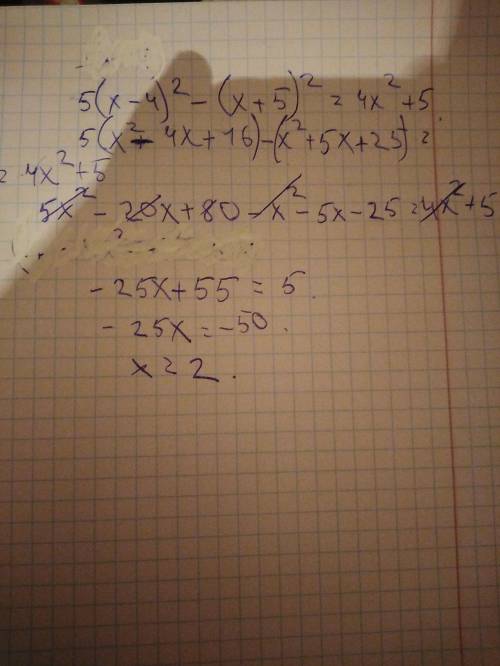 5(x-4)² - (x+5)² = 4x² + 5.
5(x² - 4x + 16) - (x² + 5x + 25) =
= 4x² + 5
5x² - 20x + 80 - x² - 5x - 25 = 4x² + 5
- 25x + 55 = 5.
- 25x = -50.
x = 2.